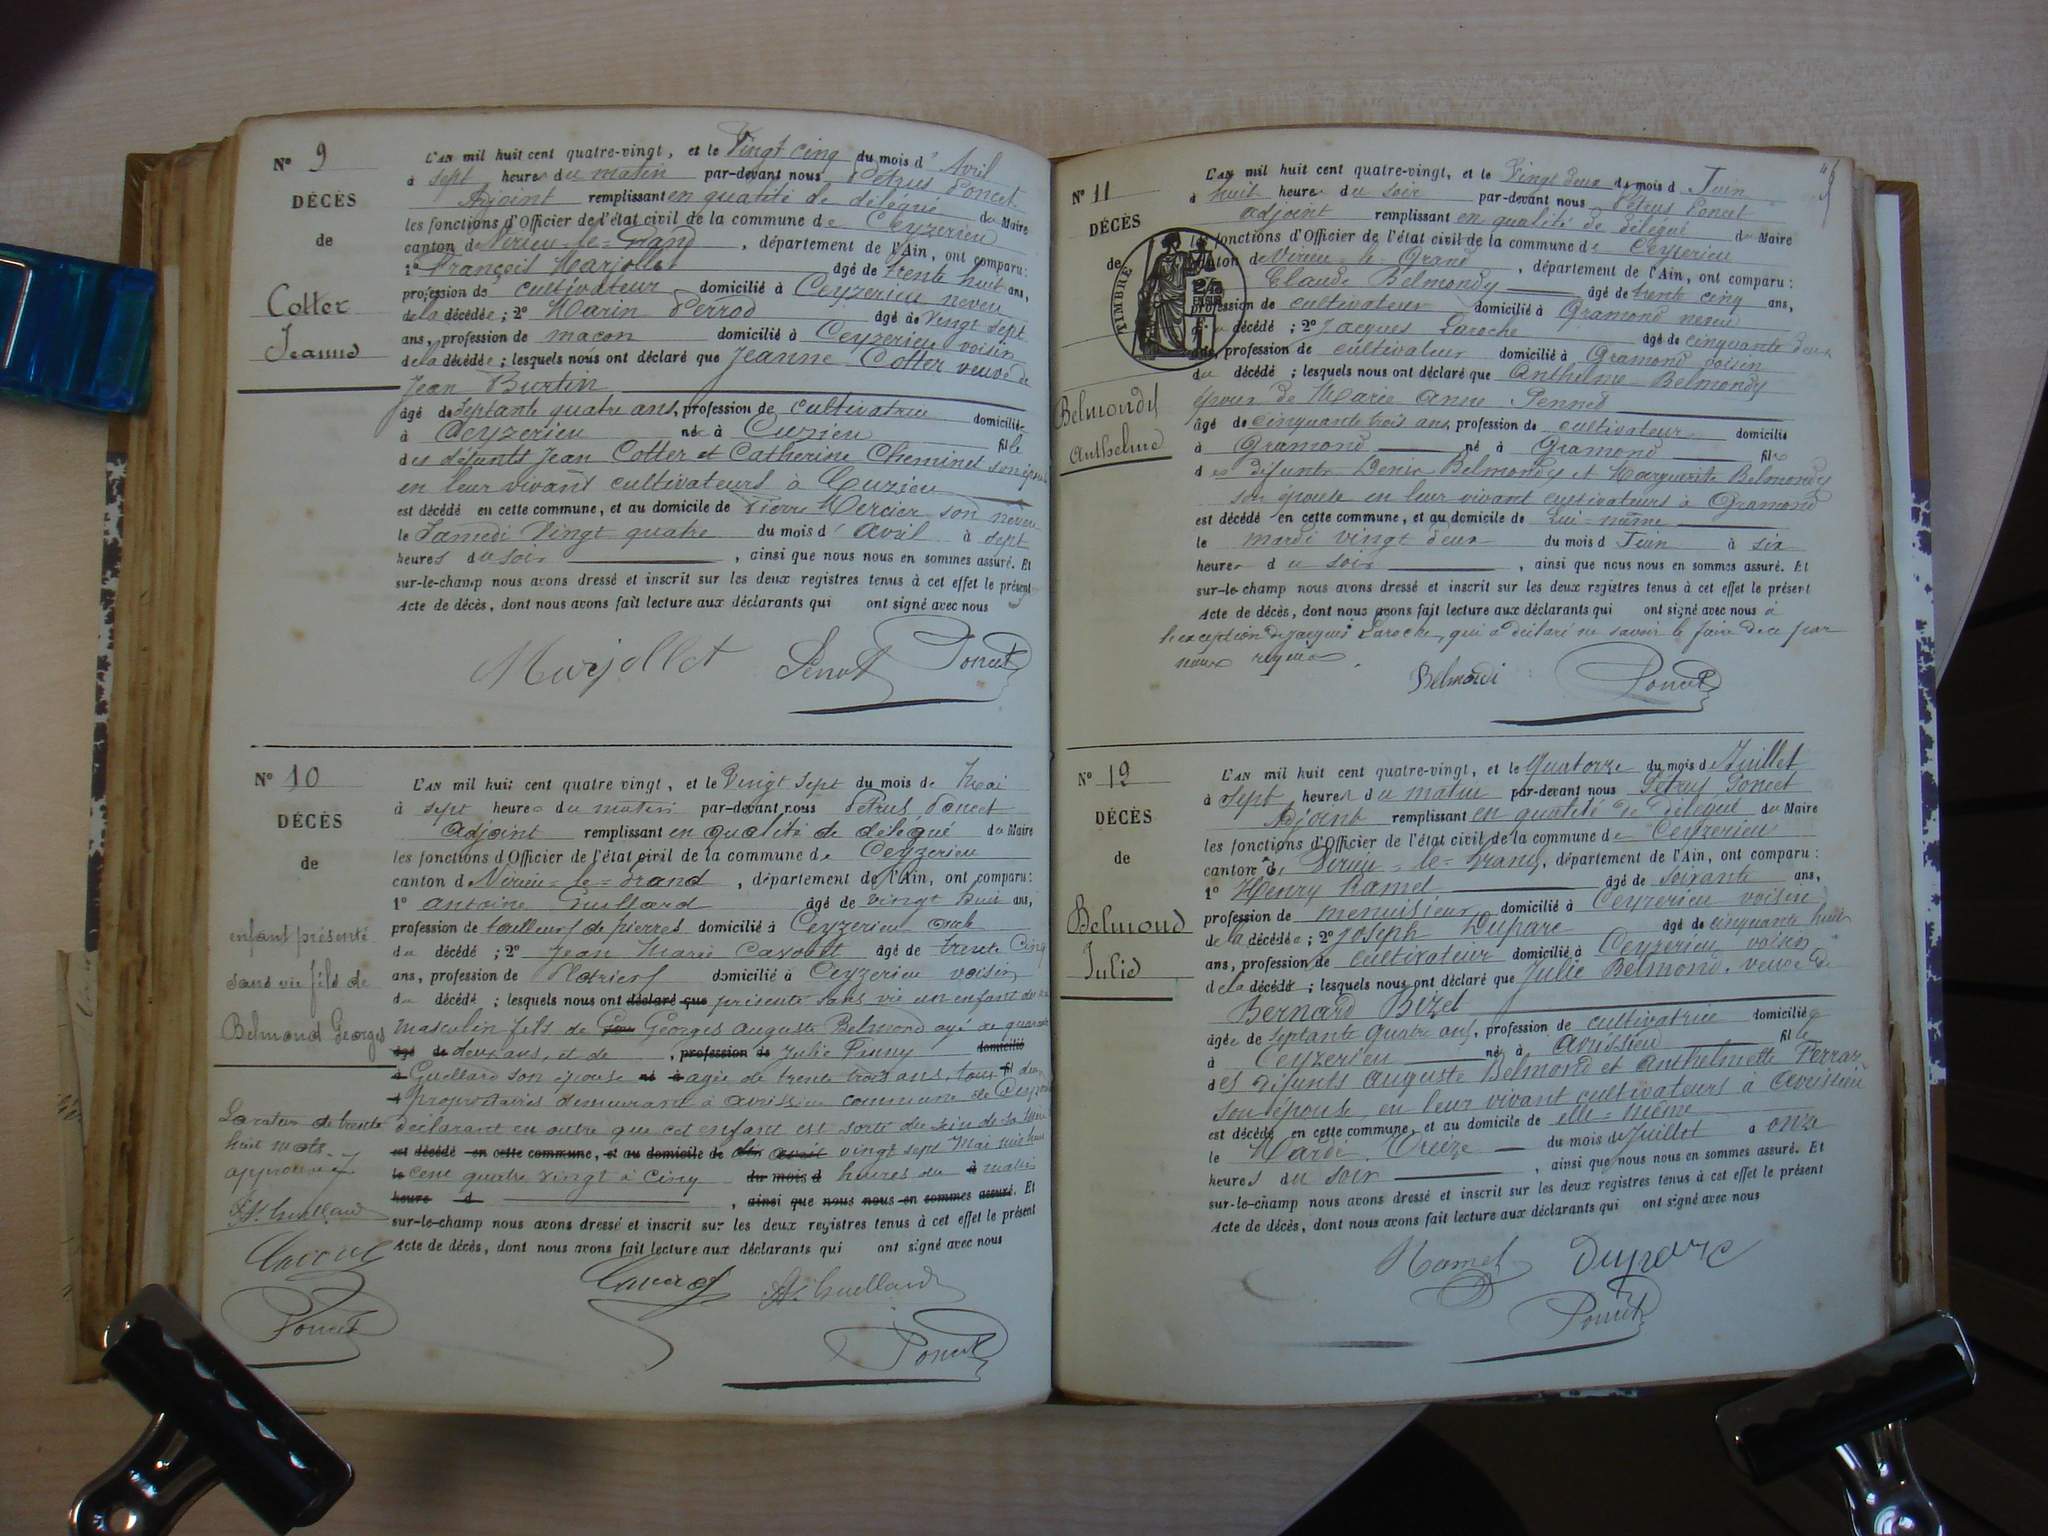 N° 9
DÉCÈS
de
Cotter
Jeanne
L'AN mil huit cent quatre-vingt, et le Vingt cinq du mois d'Avril
à sept heures du matin par-devant nous Pétrus Poncet
Adjoint remplissant en qualité de délégué du Maire
les fonctions d'Officier de l'état civil de la commune de Ceyzerieu
canton de Virieu-le-Grand, département de l'Ain, ont comparu:
1° François Marjollet âgé de trente huit ans,
profession de cultivateur domicilié à Ceyzerieu neveu
de la décédée; 2° Marin Perrod âgé de Vingt sept
ans, profession de maçon domicilié à Ceyzerieu voisin
de la décédée; lesquels nous ont déclaré que Jeanne Cotter veuve de
Jean Burtin
âgé de septante quatre ans, profession de cultivatrice domiciliée
à Ceyzerieu né à Cuzieu fille
des défunts Jean Cotter et Catherine Cheminet son épouse
en leur vivant cultivateurs à Cuzieu
est décédé en cette commune, et au domicile de Pierre Mercier son neveu
le Samedi Vingt quatre du mois d'avril à sept
heures du soir, ainsi que nous nous en sommes assuré. Et
sur-le-champ nous avons dressé et inscrit sur les deux registres tenus à cet effet le présent
Acte de décès, dont nous avons fait lecture aux déclarants qui ont signé avec nous
Marjollet Poncet
N° 10
DÉCÈS
de
enfant présenté
sans vie fils de
Belmond Georges
La rature de trente
huit mots
approuvée
L'AN mil huit cent quatre vingt, et le Vingt sept du mois de Mai
à sept heures du matin par-devant nous Pétrus Poncet
Adjoint remplissant en qualité de délégué du Maire
les fonctions d'Officier de l'état civil de la commune de Ceyzerieu
canton de Virieu-le-Grand, département de l'Ain, ont comparu:
1° Antoine Guillard âgé de vingt huit ans,
profession de tailleur de pierres domicilié à Ceyzerieu
du décédé; 2° Jean Marie âgé de trente cinq
ans, profession de domicilié à Ceyzerieu voisin
du décédé; lesquels nous ont déclaré que présenté sans vie un enfant du
masculin fils de Georges Auguste Belmond âgé de quarante
âgé de deux ans, et de, profession de Julie domicilié
à Guillard son épouse né à agée de trente trois ans, tous fil deux
propriétaires demeurant à avrissieu commune de
déclarant en outre que cet enfant est sorti du sein de sa mère
est décédé en cette commune, et au domicile de vingt sept Mai mil huit
le cent quatre vingt à cinq du mois d heures du à matin
heure d, ainsi que nous nous en sommes assuré. Et
sur-le-champ nous avons dressé et inscrit sur les deux registres tenus à cet effet le présent
Acte de décès, dont nous avons fait lecture aux déclarants qui ont signé avec nous
Poncet
Poncet
N° 11
DÉCÈS
de
TIMBRE
Belmondy
Anthelme
L'AN mil huit cent quatre-vingt, et le Vingt deux du mois d Juin
à huit heures du soir par-devant nous Pétrus Poncet
adjoint remplissant en qualité de délégué du Maire
les fonctions d'Officier de l'état civil de la commune de Ceyzerieu
canton de Virieu-le-Grand, département de l'Ain, ont comparu:
Claude Belmondy âgé de trente cinq ans,
profession de cultivateur domicilié à Gramond neveu
du décédé; 2° Jacques Laroche âgé de cinquante deux
ans, profession de cultivateur domicilié à Gramond voisin
du décédé; lesquels nous ont déclaré que Anthelme Belmondy
époux de Marie Anne Pennet
âgé de cinquante trois ans, profession de cultivateur domicilié
à Gramond né à Gramond fils
des défunts Denis Belmondy et Marguerite Belmondy
son épouse en leur vivant cultivateurs à Gramond
est décédé en cette commune, et au domicile de Lui-même
le mardi vingt deux du mois d Juin à six
heures du soir, ainsi que nous nous en sommes assuré. Et
sur-le-champ nous avons dressé et inscrit sur les deux registres tenus à cet effet le présent
Acte de décès, dont nous avons fait lecture aux déclarants qui ont signé avec nous à
l'exception de Jacques Laroche, qui a déclaré ne savoir le faire de ce par
nous requis.
Belmondi Poncet
N° 12
DÉCÈS
de
Belmond
Julie
L'AN mil huit cent quatre-vingt, et le Quatorze du mois de Juillet
à sept heures du matin par-devant nous Pétrus Poncet
Adjoint remplissant en qualité de délégué du Maire
les fonctions d'Officier de l'état civil de la commune de Ceyzerieu
canton de Virieu-le-Grand, département de l'Ain, ont comparu:
1° Henry Hamel âgé de soixante ans,
profession de menuisier domicilié à Ceyzerieu voisin
de la décédée; 2° Joseph Duparc âgé de cinquante huit
ans, profession de cultivateur domicilié à Ceyzerieu voisin
de la décédé; lesquels nous ont déclaré que Julie Belmond, veuve de
Bernard Bizet
âgée de septante quatre ans, profession de cultivatrice domiciliée
à Ceyzerieu né à Avrissieu fille
des défunts Auguste Belmond et Anthelmette Ferrar
son épouse, en leur vivant cultivateurs à Avrissieu
est décédé en cette commune, et au domicile de elle-même
le Mardi Treize du mois de Juillet à onze
heures du soir, ainsi que nous nous en sommes assuré. Et
sur-le-champ nous avons dressé et inscrit sur les deux registres tenus à cet effet le présent
Acte de décès, dont nous avons fait lecture aux déclarants qui ont signé avec nous
Hamel Duparc
Poncet